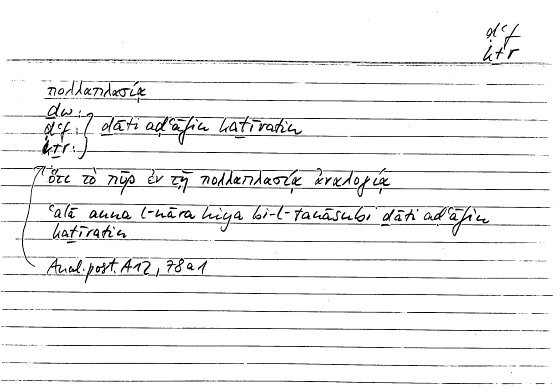 ḍʿf
kṯr
πολλαπλασίᾳ
ḏw:
ḍʿf: ḏāti aḍʿāfin kaṯīratin
kṯr:
ὅτι τὸ πῦρ ἐν τῇ πολλαπλασίᾳ ἀναλογίᾳ
ʿalā anna l-nāra hiya bi-l-tanāsubi ḏāti aḍʿāfin
kaṯīratin
Anal. post. A12, 78a1